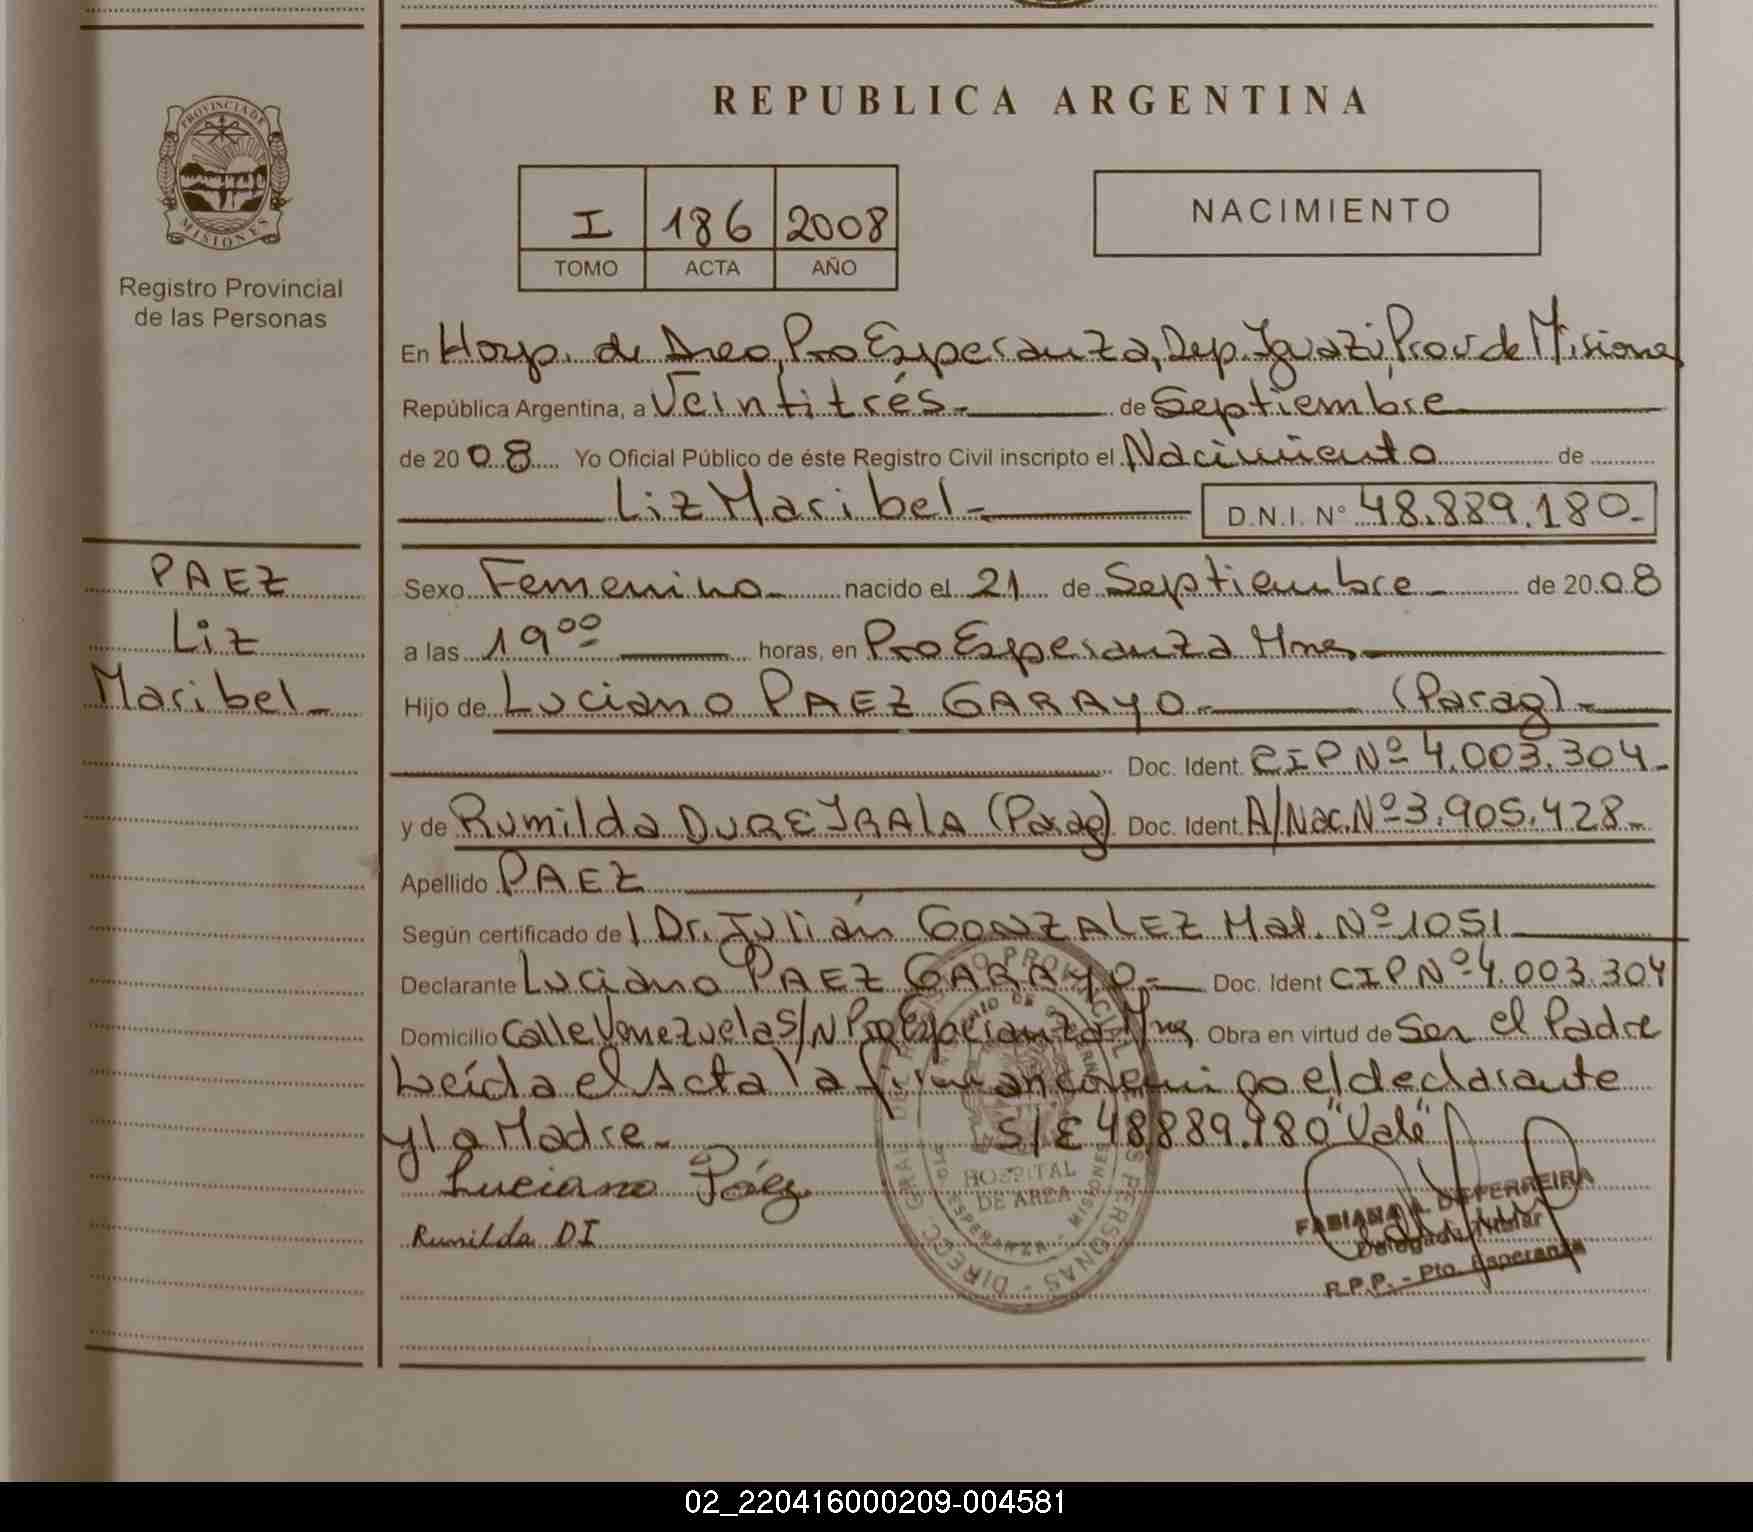 REPUBLICA ARGENTINA
PROVINCIA DE
MISIONES
Registro Provincial
de las Personas
I 186 2008
TOMO ACTA AÑO
NACIMIENTO
En Hosp. de Area, Pto Esperanza, Dep. Iguazú, Prov de Misiones
República Argentina, a Veintitrés.- de Septiembre
de 20 08 Yo Oficial Público de éste Registro Civil inscripto el Nacimiento de
Liz Maribel.- D.N.I. N° 48.889.180.-
PAEZ
Liz
Maribel.-
Sexo Femenino.- nacido el 21 de Septiembre.- de 20 08
a las 19 00 horas, en Pto Esperanza Mnes.
Hijo de Luciano PAEZ GARAYO.- (Parag).-
Doc. Ident. CIP Nº 4.003.304.-
y de Rumilda DURE IRALA (Parag) Doc. Ident A/Nac. Nº 3.905.428.-
Apellido PAEZ
Según certificado de l Dr. Julián GONZALEZ Mat. Nº 1051
Declarante Luciano PAEZ GARAYO.- Doc. Ident CIP Nº 4.003.304
Domicilio Calle Venezuela S/N Pto Esperanza Mnes Obra en virtud de Ser el Padre
Leída el Acta la firman conmigo el declarante
y la Madre.- S/E 48.889.180 "Vale"
Luciano Páez
Rumilda DI
HOSPITAL
DE AREA
PTO. ESPERANZA - MISIONES
FABIANA
Delegada Titular
R.P.P. - Pto. Esperanza
02_220416000209-004581